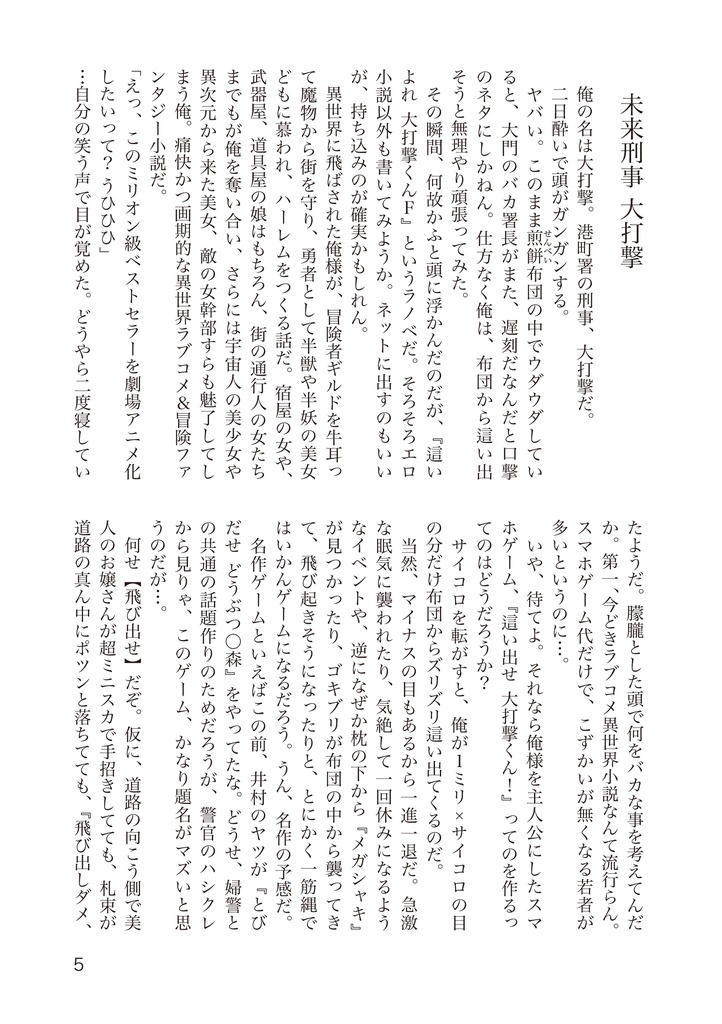 未来刑事 大打撃
俺の名は大打撃。港町署の刑事、大打撃だ。
二日酔いで頭がガンガンする。
ヤバい。このまま煎餅布団の中でウダウダしてい
せんべい
ると、大門のバカ署長がまた、遅刻だなんだと口撃
のネタにしかねん。仕方なく俺は、布団から這い出
そうと無理やり頑張ってみた。
その瞬間、何故かふと頭に浮かんだのだが、『這い
よれ 大打撃くんF』というラノベだ。そろそろエロ
小説以外も書いてみようか。ネットに出すのもいい
が、持ち込みのが確実かもしれん。
異世界に飛ばされた俺様が、冒険者ギルドを牛耳っ
て魔物から街を守り、勇者として半獣や半妖の美女
どもに慕われ、ハーレムをつくる話だ。宿屋の女や、
武器屋、道具屋の娘はもちろん、街の通行人の女たち
までもが俺を奪い合い、さらには宇宙人の美少女や
異次元から来た美女、敵の女幹部すらも魅了してし
まう俺。痛快かつ画期的な異世界ラブコメ&冒険ファ
ンタジー小説だ。
「えっ、このミリオン級ベストセラーを劇場アニメ化
したいって? うひひひ」
…自分の笑う声で目が覚めた。どうやら二度寝してい
たようだ。朦朧とした頭で何をバカな事を考えてんだ
か。第一、今どきラブコメ異世界小説なんて流行らん。
スマホゲーム代だけで、こずかいが無くなる若者が
多いというのに…。
いや、待てよ。それなら俺様を主人公にしたスマ
ホゲーム、『這い出せ 大打撃くん!』ってのを作るっ
てのはどうだろうか?
サイコロを転がすと、俺が1ミリ×サイコロの目
の分だけ布団からズリズリ這い出てくるのだ。
当然、マイナスの目もあるから一進一退だ。急激
な眠気に襲われたり、気絶して一回休みになるよう
なイベントや、逆になぜか枕の下から『メガシャキ』
が見つかったり、ゴキブリが布団の中から襲ってき
て、飛び起きそうになったりと、とにかく一筋縄で
はいかんゲームになるだろう。うん、名作の予感だ。
名作ゲームといえばこの前、井村のヤツが『とび
だせ どうぶつ〇森』をやってたな。どうせ、婦警と
の共通の話題作りのためだろうが、警官のハシクレ
から見りゃ、このゲーム、かなり題名がマズいと思
うのだが…。
何せ【飛び出せ】だぞ。仮に、道路の向こう側で美
人のお嬢さんが超ミニスカで手招きしてても、札束が
道路の真ん中にポツンと落ちてても、『飛び出しダメ、
5